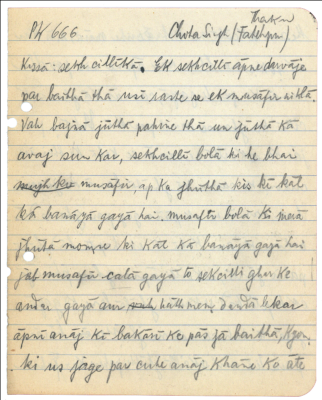 PK 666. Chota Singh (Fatehpur)
Kissā: sekh cillikā. Ek sekhcillī āpne darvāje
par baithā thā usī raste se ek musāfir nikla.
Vah bajnā jūthā pahine thā un jūthā kā
avaj sun kar, sekhcillī bolā ki he bhai
musāfir, ap kā jhuthā kis ki kat
kā banāyā gayā hai. musafir bolā ki merā
jhutā momse ki kat kā banāyā gayā hai
jab musafir calā gayā to sekcilli ghar ke
andar gayā aur hath mem dandā lekar
āpni anāj ki bakarī ke pās jā baithā, kyon
ki us jāge par cuhe anāj khāne ko āte